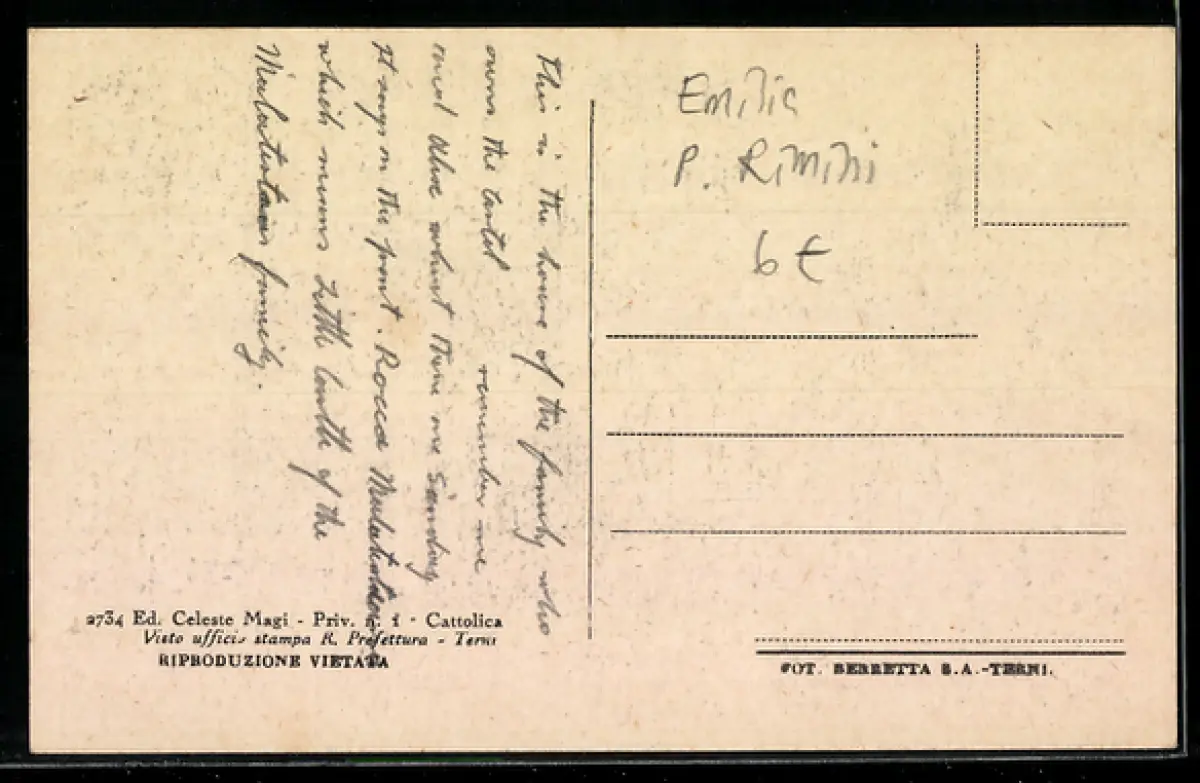 This is the house of the family who
owns the castel remember me
and Olive what there one Sunday
It says on the front. Rocca
which means little castle of the
family.
Emilia
P. Rimini
6€
2734 Ed. Celeste Magi - Priv. n. 1 - Cattolica
Visto ufficio stampa R. Prefettura - Terni
RIPRODUZIONE VIETATA
FOT. BERRETTA S.A.-TERNI.